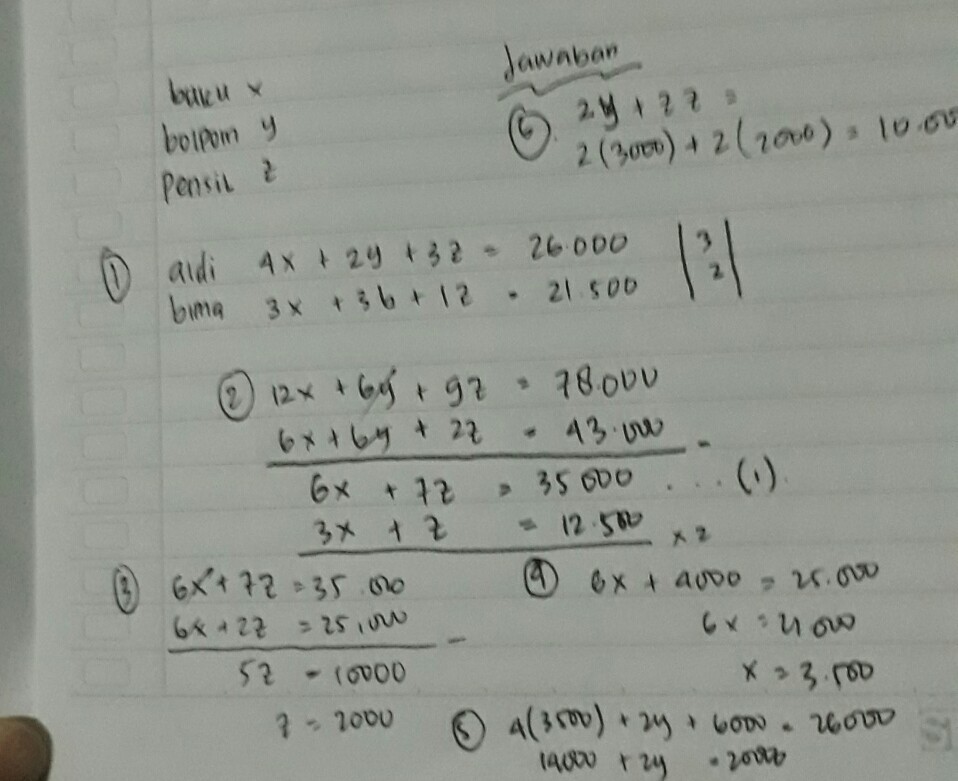 buku x
bolpom y
pensil z
Jawaban
⑥. 2y + 2z =
2(3000) + 2(2000) = 10.00
① aldi 4x + 2y + 3z = 26.000 | 3 |
bima 3x + 3b + 1z = 21.500 | 2 |
② 12x + 6y + 9z = 78.000
6x + 6y + 2z = 43.000 -
6x + 7z = 35000 ... (1).
3x + z = 12.500 x 2
③ 6x + 7z = 35.000
6x + 2z = 25,000 -
5z = 10000
z = 2000
④ 6x + 4000 = 25.000
6x = 21000
x = 3.500
⑤ 4(3500) + 2y + 6000 = 26000
14000 + 2y = 20000